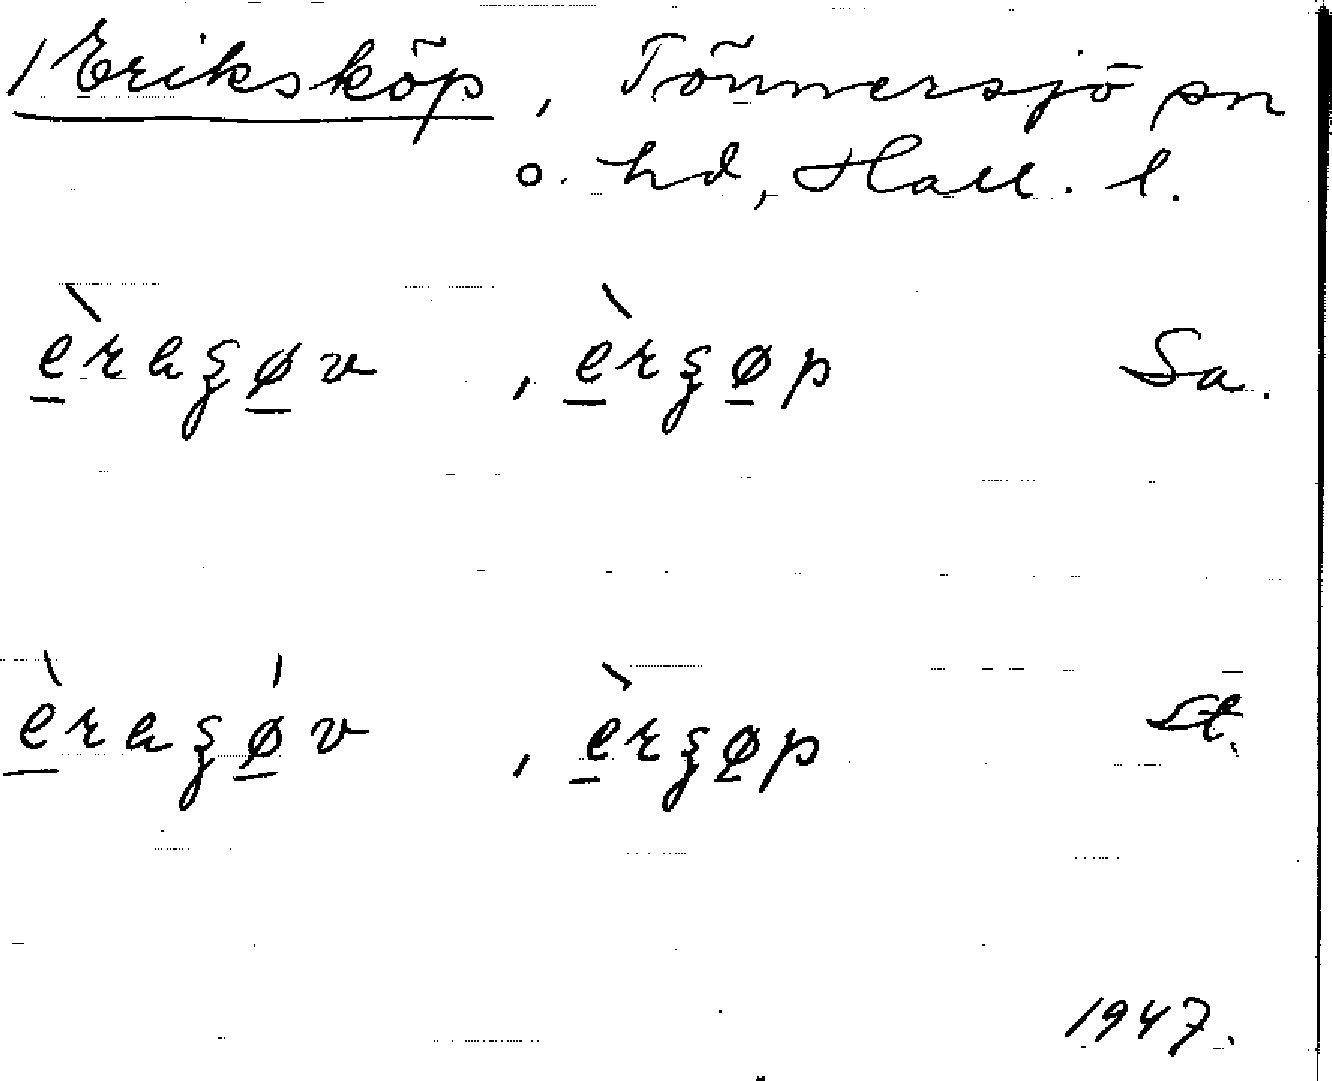 /Eriksköp, Tönnersjö sn
o. hd, Hall. l.
èraʂøv, èrʂøp Sa.
èraʂǿv, èrʂøp St.
1947.